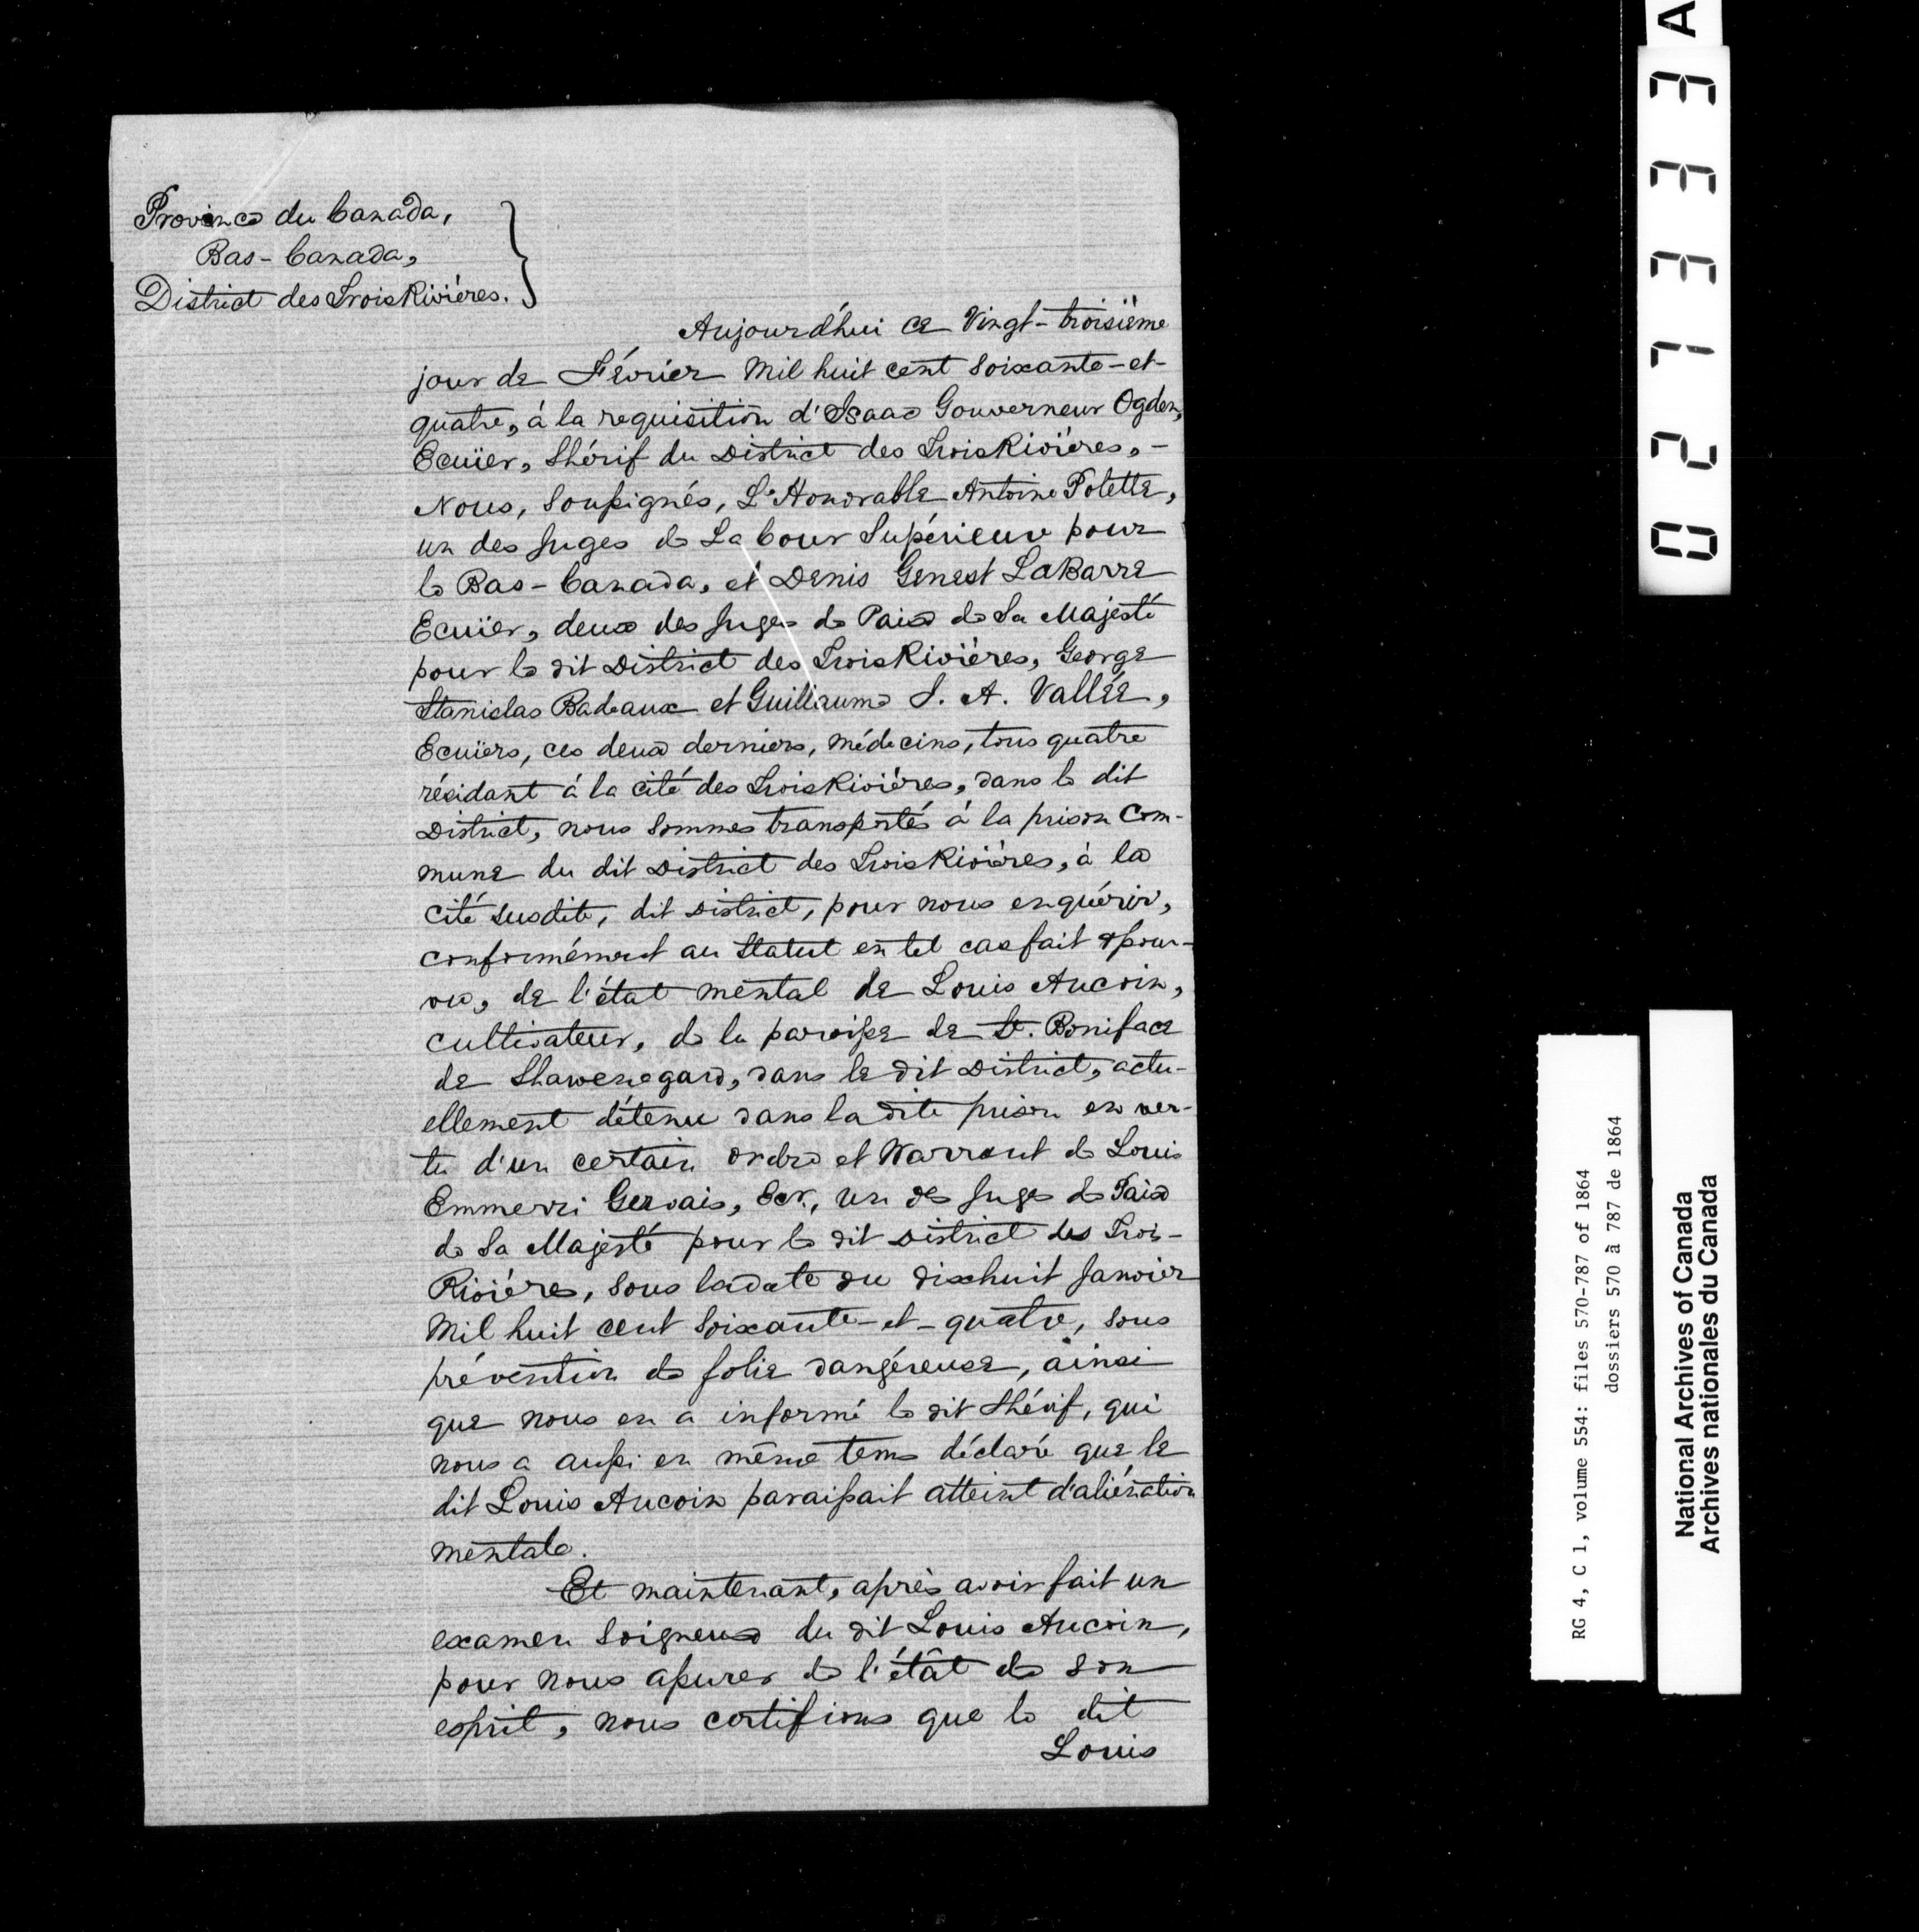 Province du Canada,
Bas-Canada,
District des Trois Rivières.
Aujourd'hui ce Vingt-troisième
jour de Février Mil huit cent soixante-et-
quatre, à la requisition d'Isaac Gouverneur Ogden,
Ecuïer, Shérif du District des Trois Rivières, -
Nous, Soussignés, L'Honorable Antoine Polette,
un des Juges de La Cour Supérieure pour
le Bas-Canada, et Denis Genest LaBarre
Ecuïer, deux des Juges de Paix de Sa Majesté
pour le dit District des Trois Rivières, George
Stanislas Badeaux et Guillaume J. A. Vallée,
Ecuïers, ces deux derniers, médecins, tous quatre
résidant à la cité des Trois Rivières, dans le dit
District, nous sommes transportés à la prison Com-
mune du dit District des Trois Rivières, à la
cité susdite, dit District, pour nous enquérir,
conformément au Statut en tel cas fait & pour-
vu, de l'état mental de Louis Aucoin,
cultivateur, de la paroisse de St. Boniface
de Shawenegard, dans le dit District, actu-
ellement détenu dans la dite prison en ver-
tu d'un certain ordre et Warrant de Louis
Emmerri Gervais, Ecr., un des Juges de Paix
de Sa Majesté pour le dit District des Trois-
Rivières, sous la date du dixhuit Janvier
Mil huit cent soixante-et-quatre, sous
prévention de folie dangéreuse, ainsi
que nous en a informé le dit Shérif, qui
nous a aussi en même tems déclaré que le
dit Louis Aucoin paraissait atteint d'aliénation
mentale.
Et maintenant, après avoir fait un
examen soigneux du dit Louis Aucoin,
pour nous assurer de l'étât de son
esprit, nous certifions que le dit
Louis
A
027333
RG 4, C 1, volume 554: files 570-787 of 1864
dossiers 570 à 787 de 1864
National Archives of Canada
Archives nationales du Canada